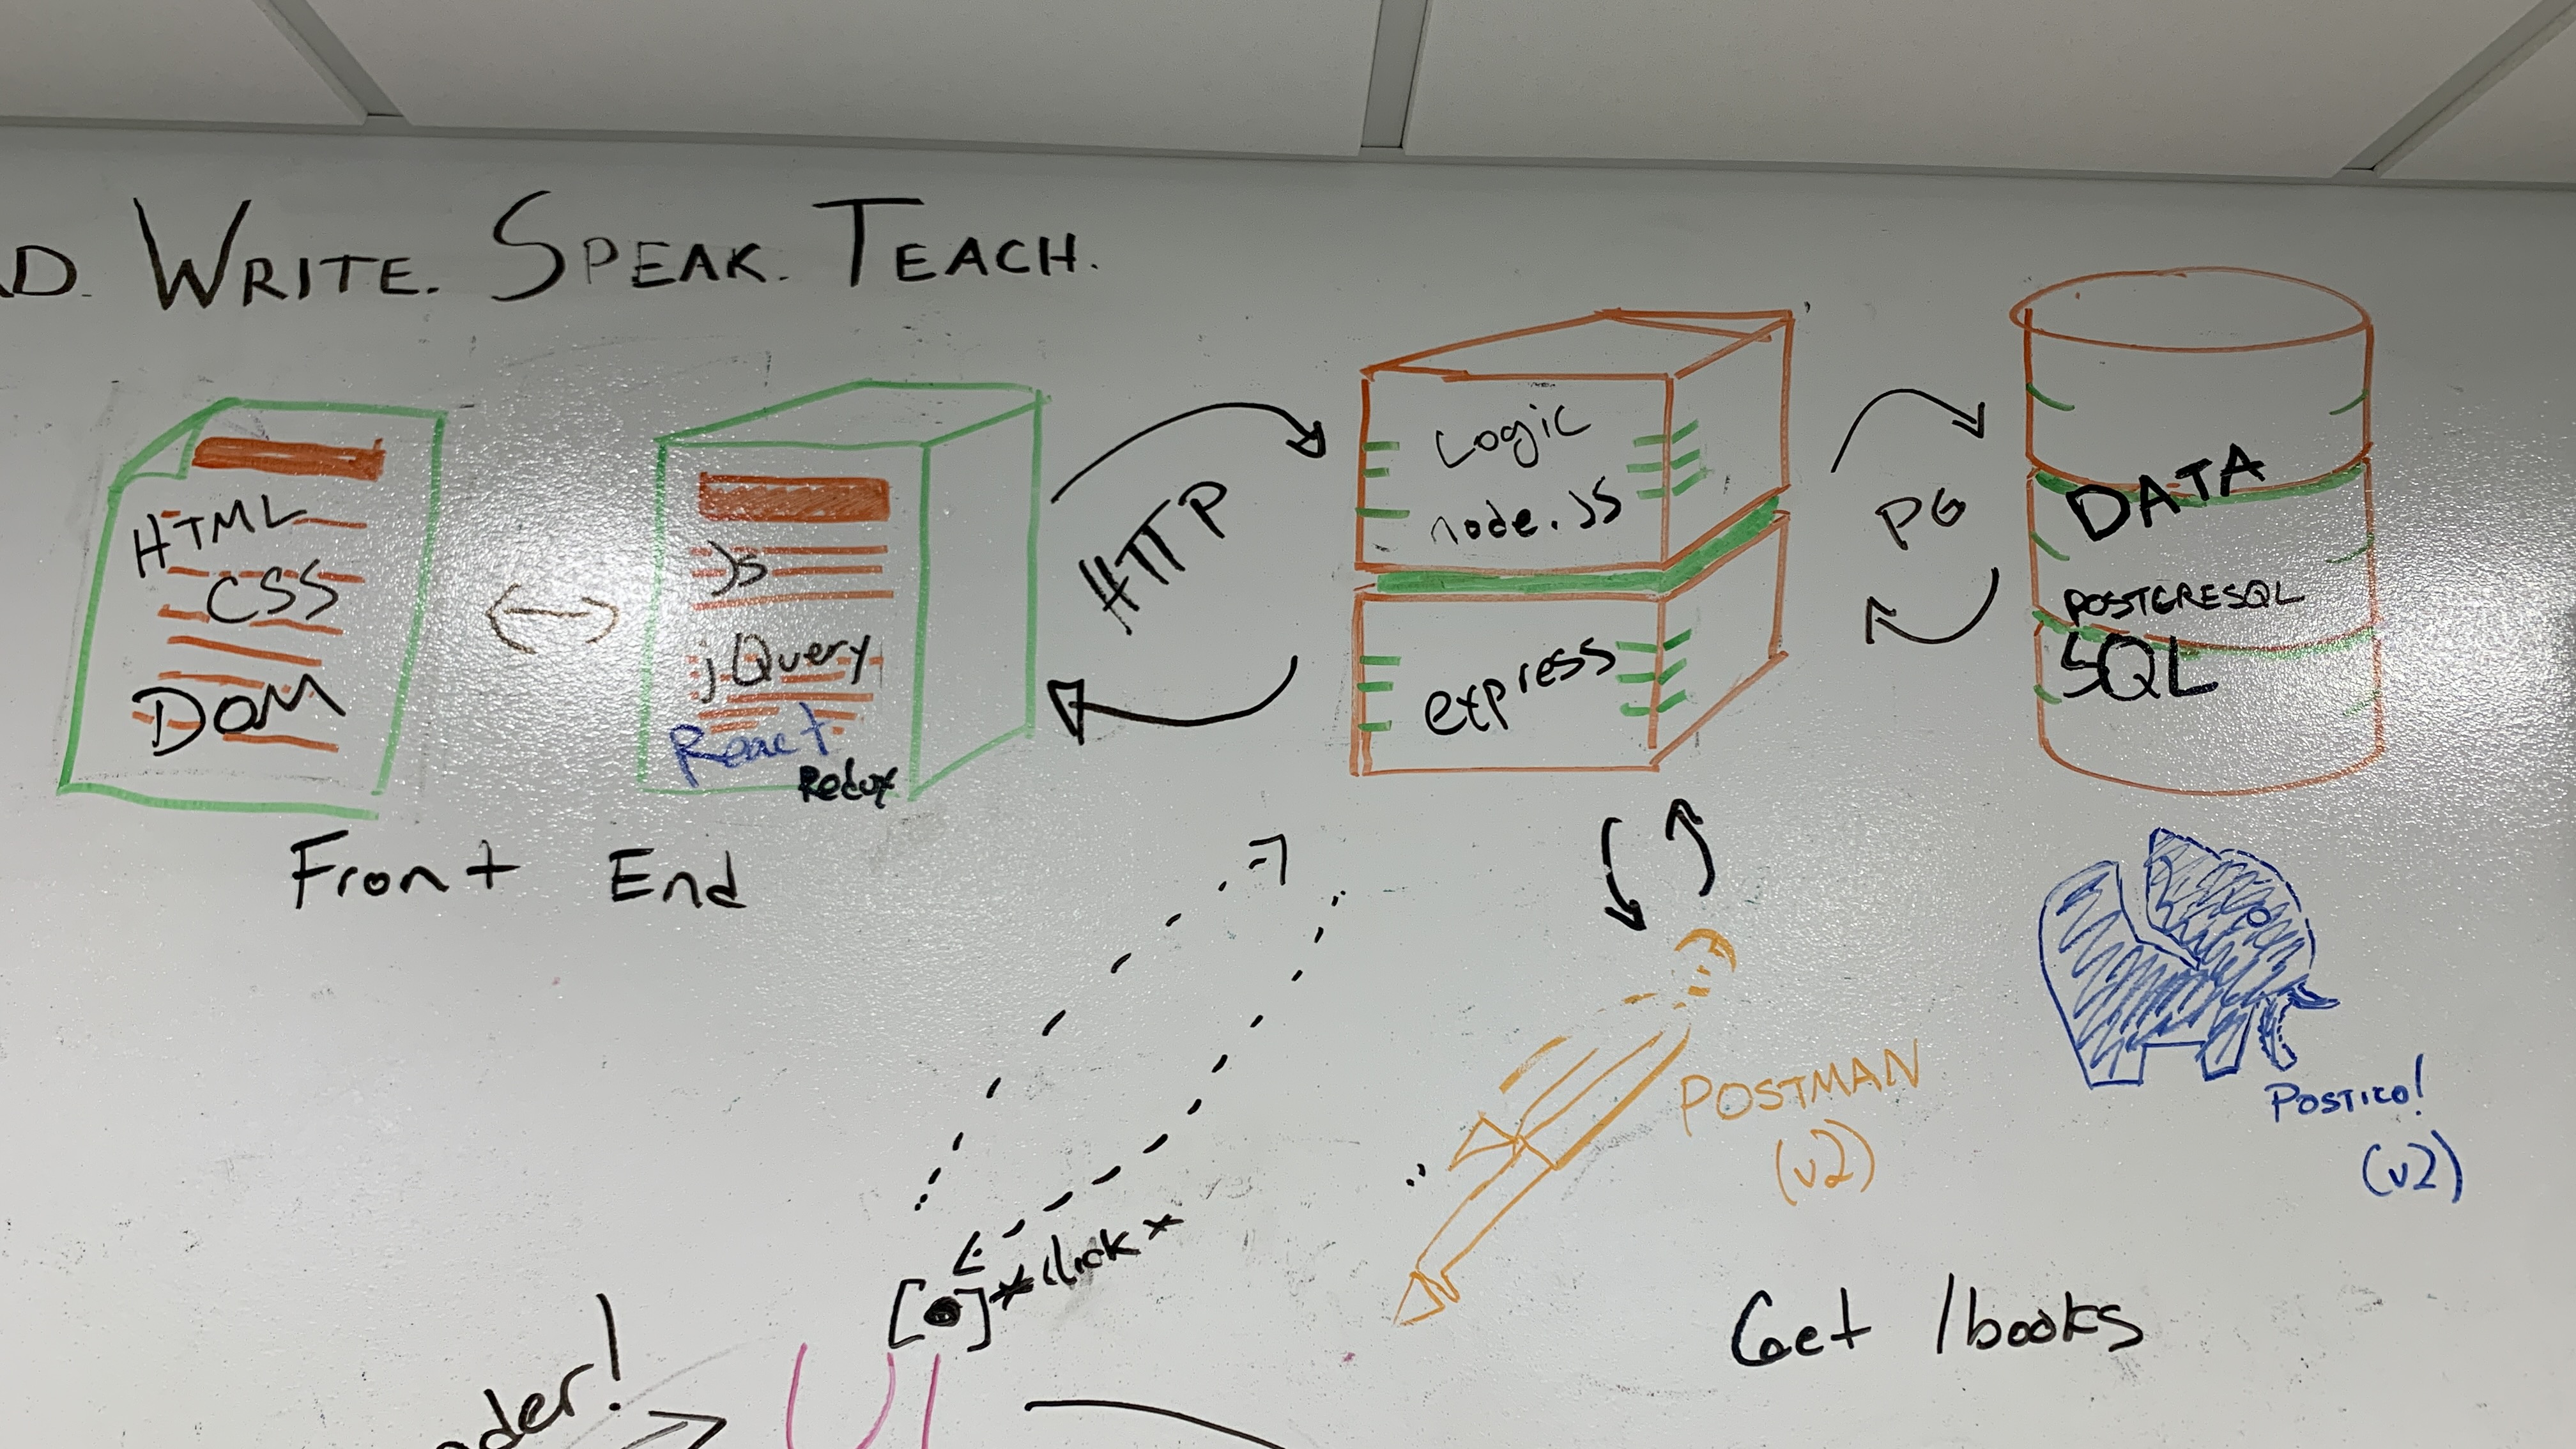 D. WRITE. SPEAK. TEACH.
HTML
CSS
DOM
Js
jQuery
React
Redux
Front End
HTTP
Logic
node.JS
express
PG
DATA
POSTGRESQL
SQL
POSTMAN
(v2)
POSTICO!
(v2)
[●] *click*
Get /books
der!
UI